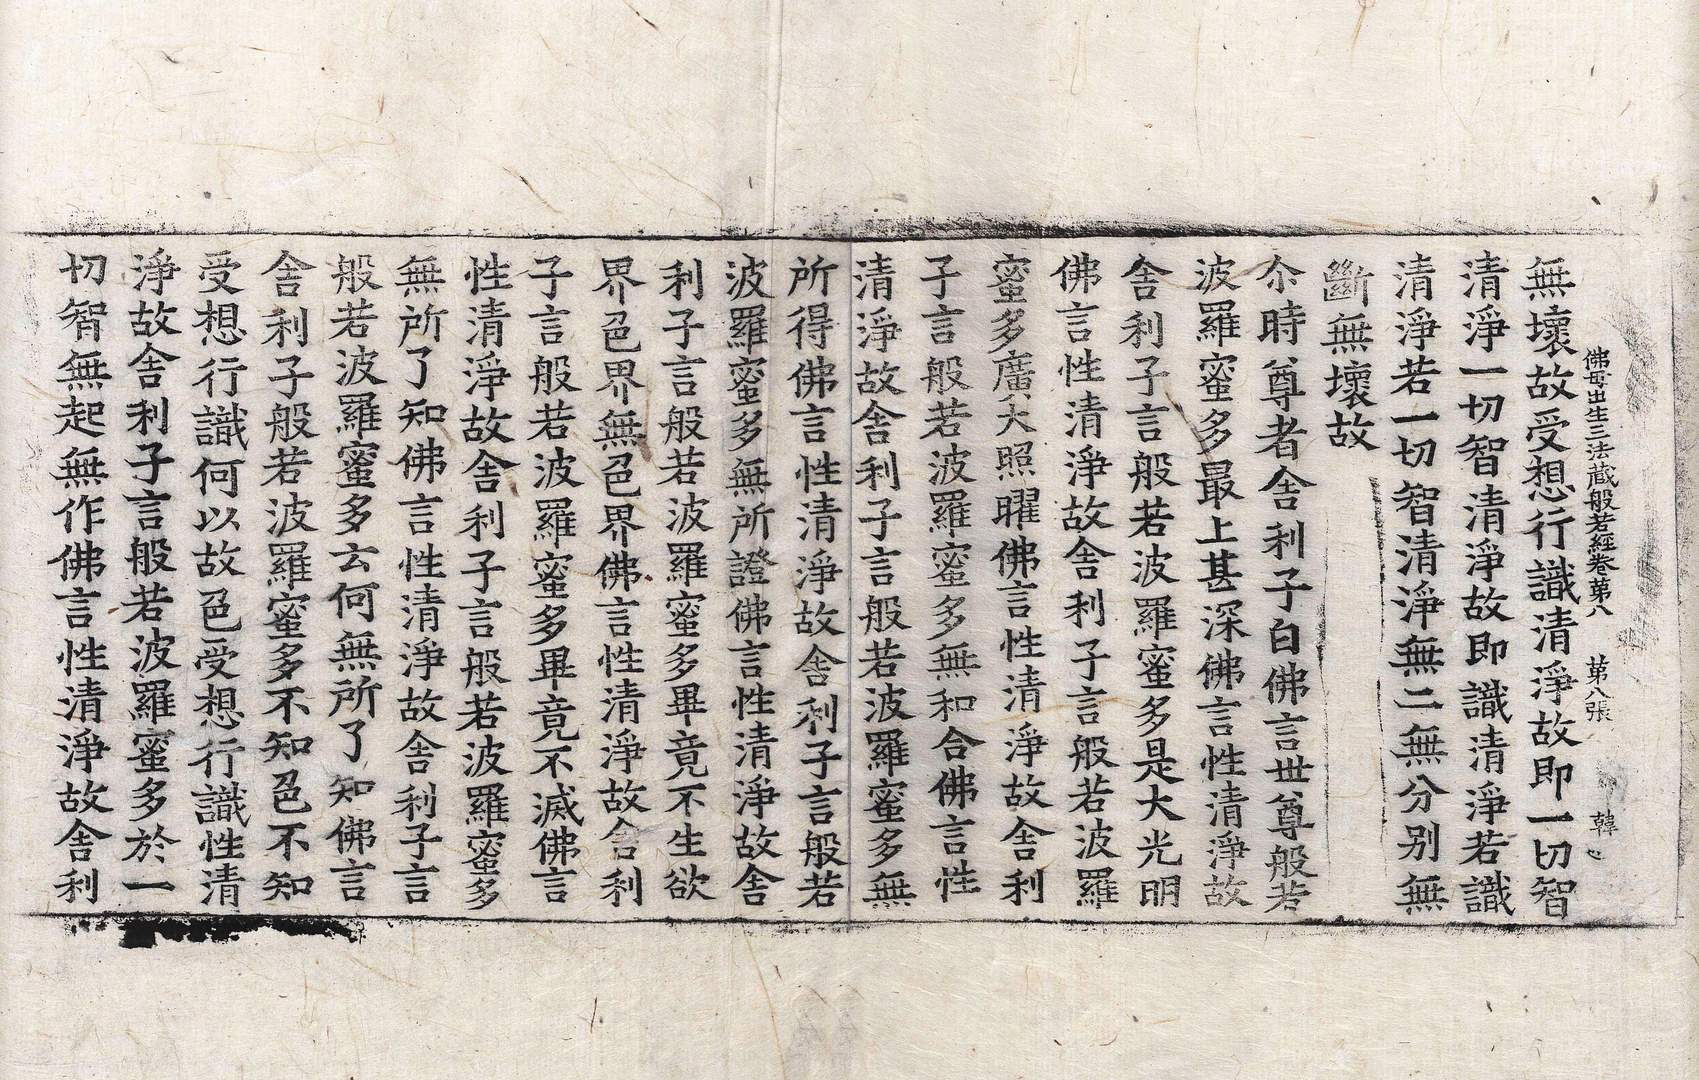 佛母出生三法藏般若經卷第八　第八張　韓
無壞故受想行識清淨故即一切智
清淨一切智清淨故即識清淨若識
清淨若一切智清淨無二無分別無
斷無壞故
尒時尊者舍利子白佛言世尊般若
波羅蜜多最上甚深佛言性清淨故
舍利子言般若波羅蜜多是大光明
佛言性清淨故舍利子言般若波羅
蜜多廣大照曜佛言性清淨故舍利
子言般若波羅蜜多無和合佛言性
清淨故舍利子言般若波羅蜜多無
所得佛言性清淨故舍利子言般若
波羅蜜多無所證佛言性清淨故舍
利子言般若波羅蜜多畢竟不生欲
界色界無色界佛言性清淨故舍利
子言般若波羅蜜多畢竟不滅佛言
性清淨故舍利子言般若波羅蜜多
無所了知佛言性清淨故舍利子言
般若波羅蜜多云何無所了知佛言
舍利子般若波羅蜜多不知色不知
受想行識何以故色受想行識性清
淨故舍利子言般若波羅蜜多於一
切智無起無作佛言性清淨故舍利